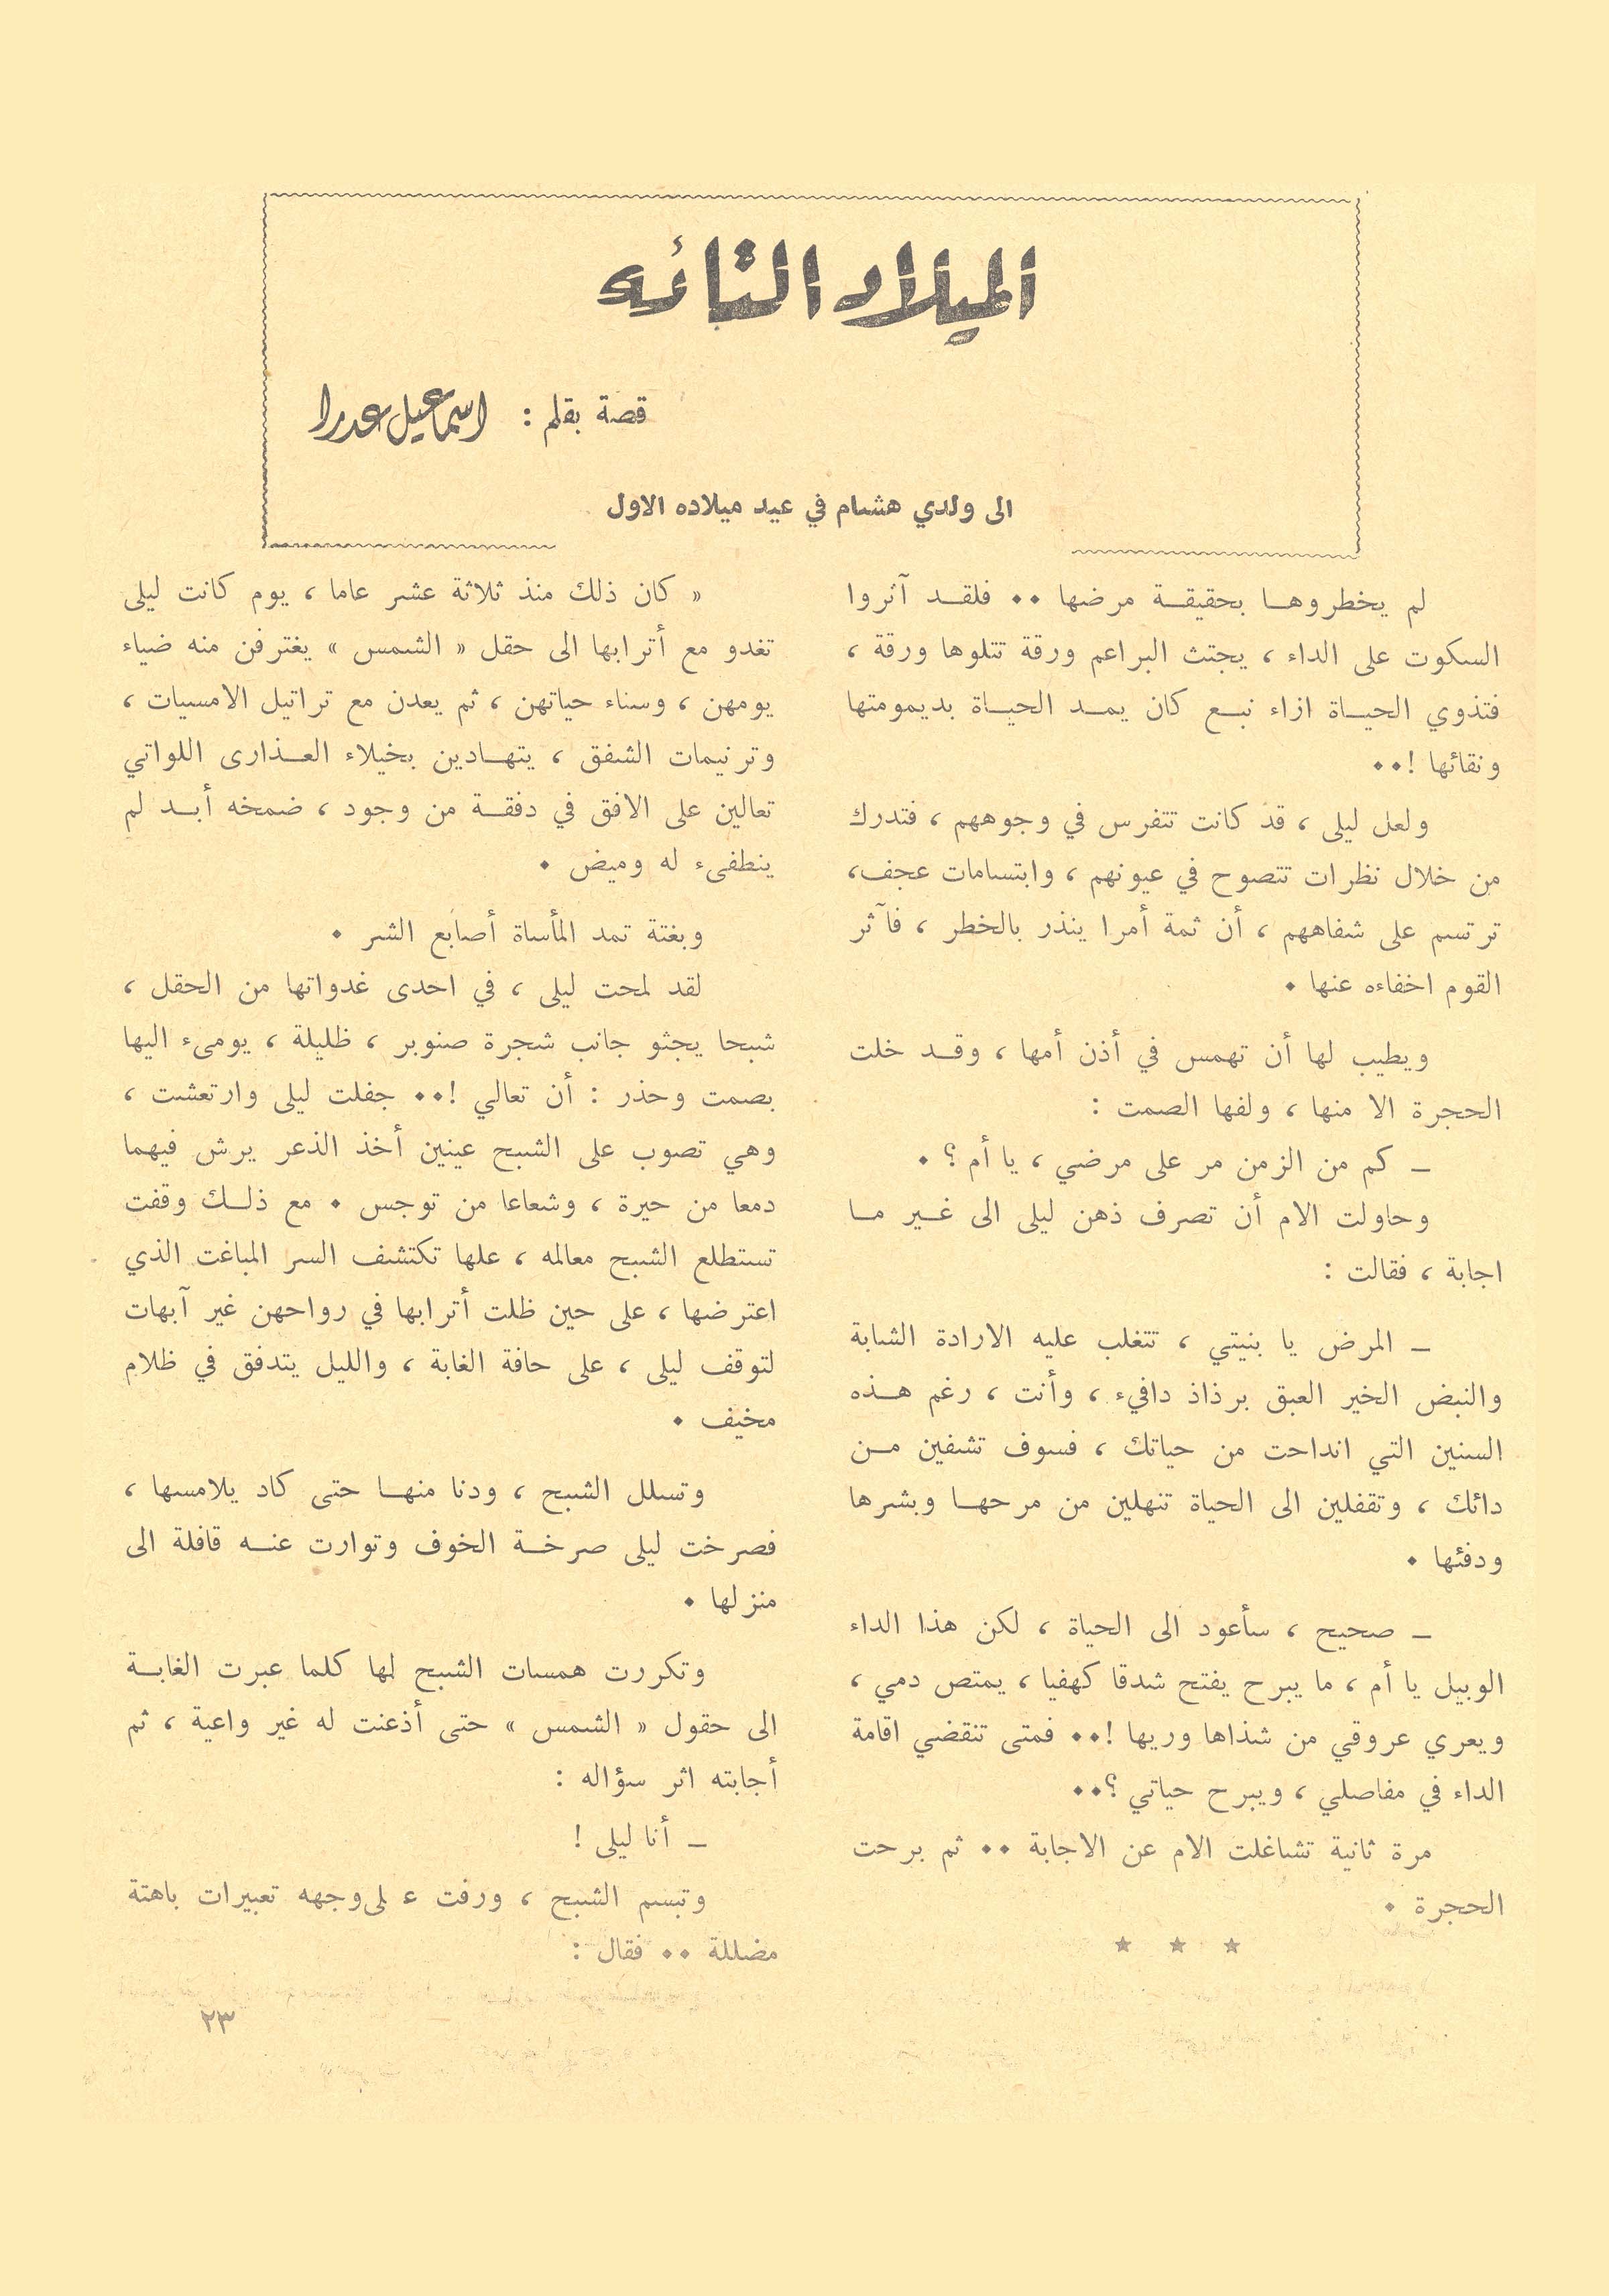 الميلاد التائه
قصة بقلم : اسماعيل عدرا
الى ولدي هشام في عيد ميلاده الاول
لم يخطروها بحقيقة مرضها ٠٠ فلقد آثروا
السكوت على الداء ، يجتث البراعم ورقة تتلوها ورقة ،
فتذوي الحياة ازاء نبع كان يمد الحياة بديمومتها
ونقائها !٠٠
ولعل ليلى ، قد كانت تتفرس في وجوههم ، فتدرك
من خلال نظرات تتصوح في عيونهم ، وابتسامات عجف،
ترتسم على شفاههم ، أن ثمة أمرا ينذر بالخطر ، فآثر
القوم اخفاءه عنها ٠
ويطيب لها أن تهمس في أذن أمها ، وقد خلت
الحجرة الا منها ، ولفها الصمت :
ــ كم من الزمن مر على مرضي ، يا أم ؟ ٠
وحاولت الام أن تصرف ذهن ليلى الى غير ما
اجابة ، فقالت :
ــ المرض يا بنيتي ، تتغلب عليه الارادة الشابة
والنبض الخير العبق برذاذ دافيء ، وأنت ، رغم هذه
السنين التي انداحت من حياتك ، فسوف تشفين من
دائك ، وتقفلين الى الحياة تنهلين من مرحها وبشرها
ودفئها ٠
ــ صحيح ، سأعود الى الحياة ، لكن هذا الداء
الوبيل يا أم ، ما يبرح يفتح شدقا كهفيا ، يمتص دمي ،
ويعري عروقي من شذاها وريها !٠٠ فمتى تنقضي اقامة
الداء في مفاصلي ، ويبرح حياتي ؟٠٠
مرة ثانية تشاغلت الام عن الاجابة ٠٠ ثم برحت
الحجرة ٠
★ ★ ★
« كان ذلك منذ ثلاثة عشر عاما ، يوم كانت ليلى
تغدو مع أترابها الى حقل « الشمس » يغترفن منه ضياء
يومهن ، وسناء حياتهن ، ثم يعدن مع تراتيل الامسيات ،
وترنيمات الشفق ، يتهادين بخيلاء العذارى اللواتي
تعالين على الافق في دفقة من وجود ، ضمخه أبد لم
ينطفىء له وميض ٠
وبغتة تمد المأساة أصابع الشر ٠
لقد لمحت ليلى ، في احدى غدواتها من الحقل ،
شبحا يجثو جانب شجرة صنوبر ، ظليلة ، يومىء اليها
بصمت وحذر : أن تعالي !٠٠ جفلت ليلى وارتعشت ،
وهي تصوب على الشبح عينين أخذ الذعر يرش فيهما
دمعا من حيرة ، وشعاعا من توجس ٠ مع ذلك وقفت
تستطلع الشبح معالمه ، علها تكتشف السر المباغت الذي
اعترضها ، على حين ظلت أترابها في رواحهن غير آبهات
لتوقف ليلى ، على حافة الغابة ، والليل يتدفق في ظلام
مخيف ٠
وتسلل الشبح ، ودنا منها حتى كاد يلامسها ،
فصرخت ليلى صرخة الخوف وتوارت عنه قافلة الى
منزلها ٠
وتكررت همسات الشبح لها كلما عبرت الغابة
الى حقول « الشمس » حتى أذعنت له غير واعية ، ثم
أجابته اثر سؤاله :
ــ أنا ليلى !
وتبسم الشبح ، ورفت ع لى وجهه تعبيرات باهتة
مضللة ٠٠ فقال :
٢٣